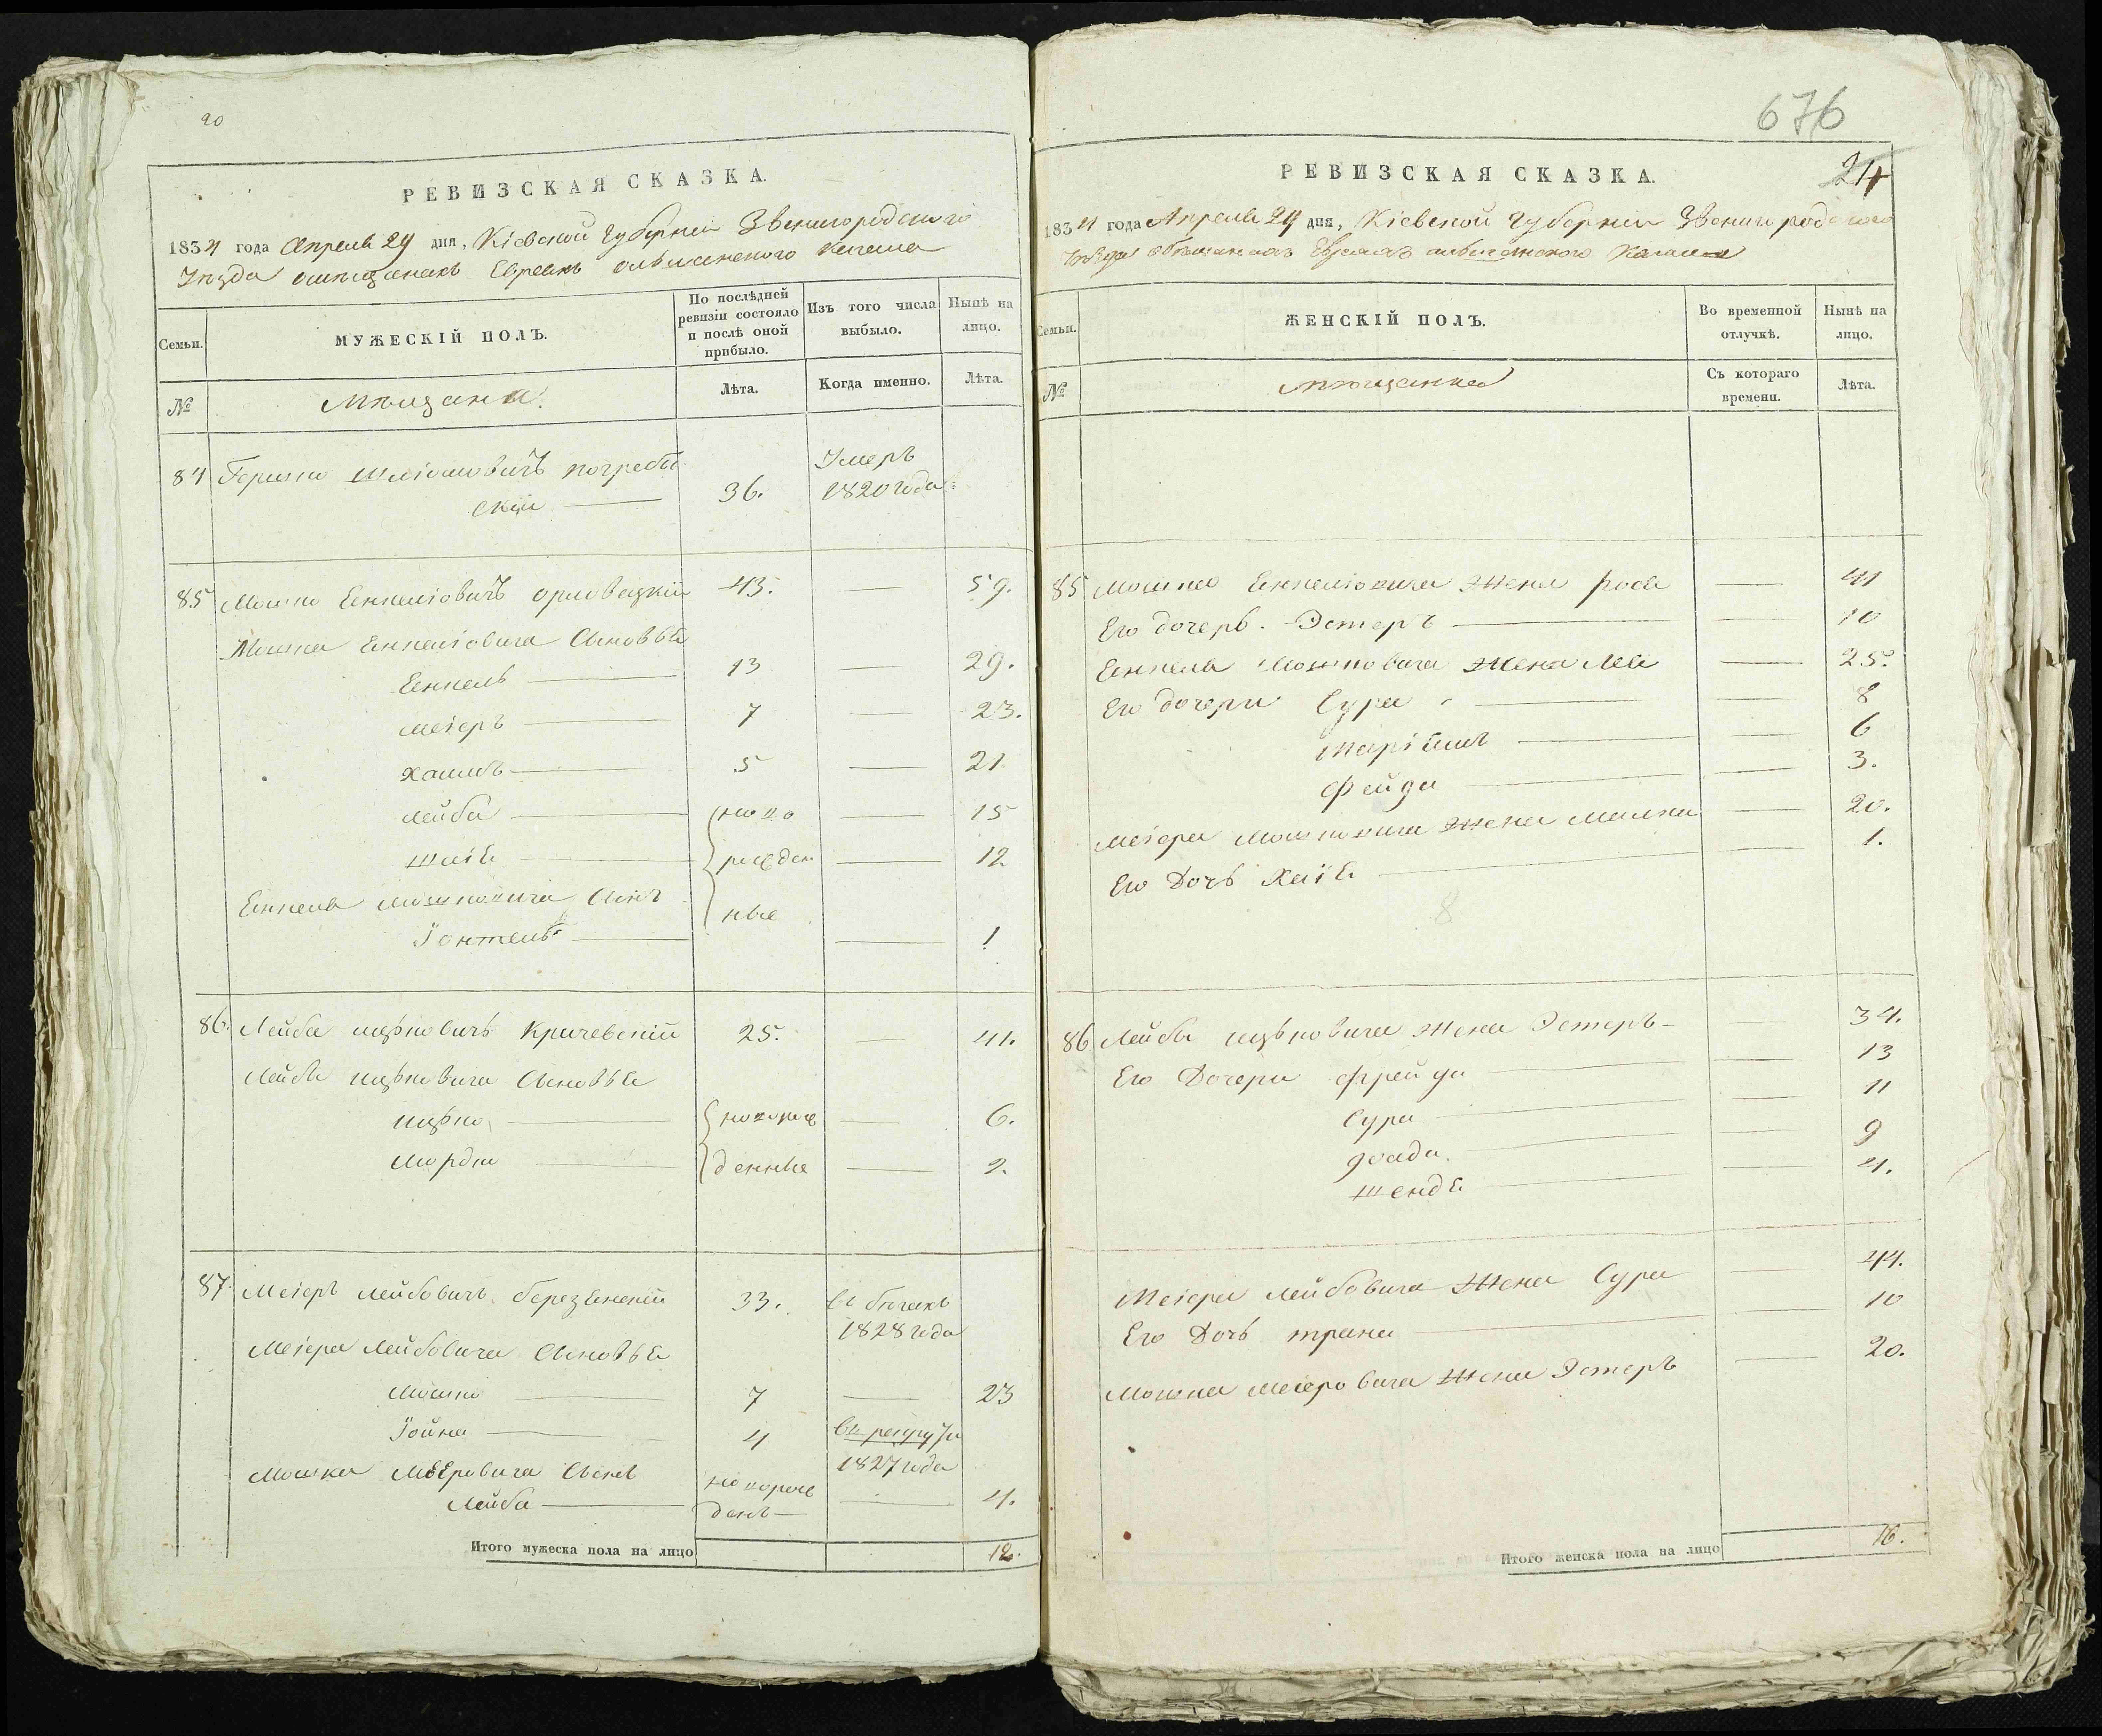 20
РЕВИЗСКАЯ СКАЗКА.
1834 года Апреля 24 дня, Кіевской Губерніи Звенигородского
Уезда омѣщанахъ Евреяхъ ольшанского Кагала
Семьи.
МУЖЕСКІЙ ПОЛЪ.
По послѣдней ревизіи состояло и послѣ оной прибыло.
Изъ того числа выбыло.
Нынѣ на лицо.
№
Мѣщане
Лѣта.
Когда именно.
Лѣта.
84 Гершко Шліомовичъ погребы
скій 36. Умеръ 1820 года
85 Мошко Еннеліовичъ орловецкій 43. 59.
Мошка Еннеліовича Сыновья
Еннель 13 29.
Меіеръ 7 23.
Хаимъ 5 21
Лейба ново 15
Шаія рожден 12
Еннеля Мошковича Сынъ ные
Іонтель 1
86. Лейба ицковичъ Кричевскій 25. 41.
Лейбы ицковича Сыновья
ицко новорож 6.
Мордко денные 2.
87. Меіеръ Лейбовичъ березенскій 33. в бѣгахъ
1828 года
Меіера Лейбовича Сыновья
Мошко 7 23
Іойна 4 в рекруты
1827 года
Мошка МеЕровича Сынъ новорож
Лейба денъ 4.
Итого мужеска пола на лицо 12.
676
24
РЕВИЗСКАЯ СКАЗКА.
1834 года Апреля 24 дня, Кіевской Губерніи Звенигородского
Уезда Обмѣщанахъ Евреяхъ ольшанского Кагала
Семьи.
ЖЕНСКІЙ ПОЛЪ.
Во временной отлучкѣ.
Нынѣ на лицо.
№
мѣщанки
Съ котораго времени.
Лѣта.
85 Мошка Еннеліовича жена рося 41
Его дочерь. Эстеръ 10
Еннеля Мошковича жена Лея 25.
Его дочери Сура 8
Маріямъ 6
Фейга 3.
Меіера Мошковича жена Малка 20.
Его Дочь Хаія 1.
8
86 Лейбы ицковича жена Эстеръ 34.
Его Дочери фрейда 13
Сура 11
9
Шендя 4.
Меіера Лейбовича жена Сура 44.
Его Дочь трана 10
Мошка меіеровича жена Эстеръ 20.
Итого женска пола на лицо 16.